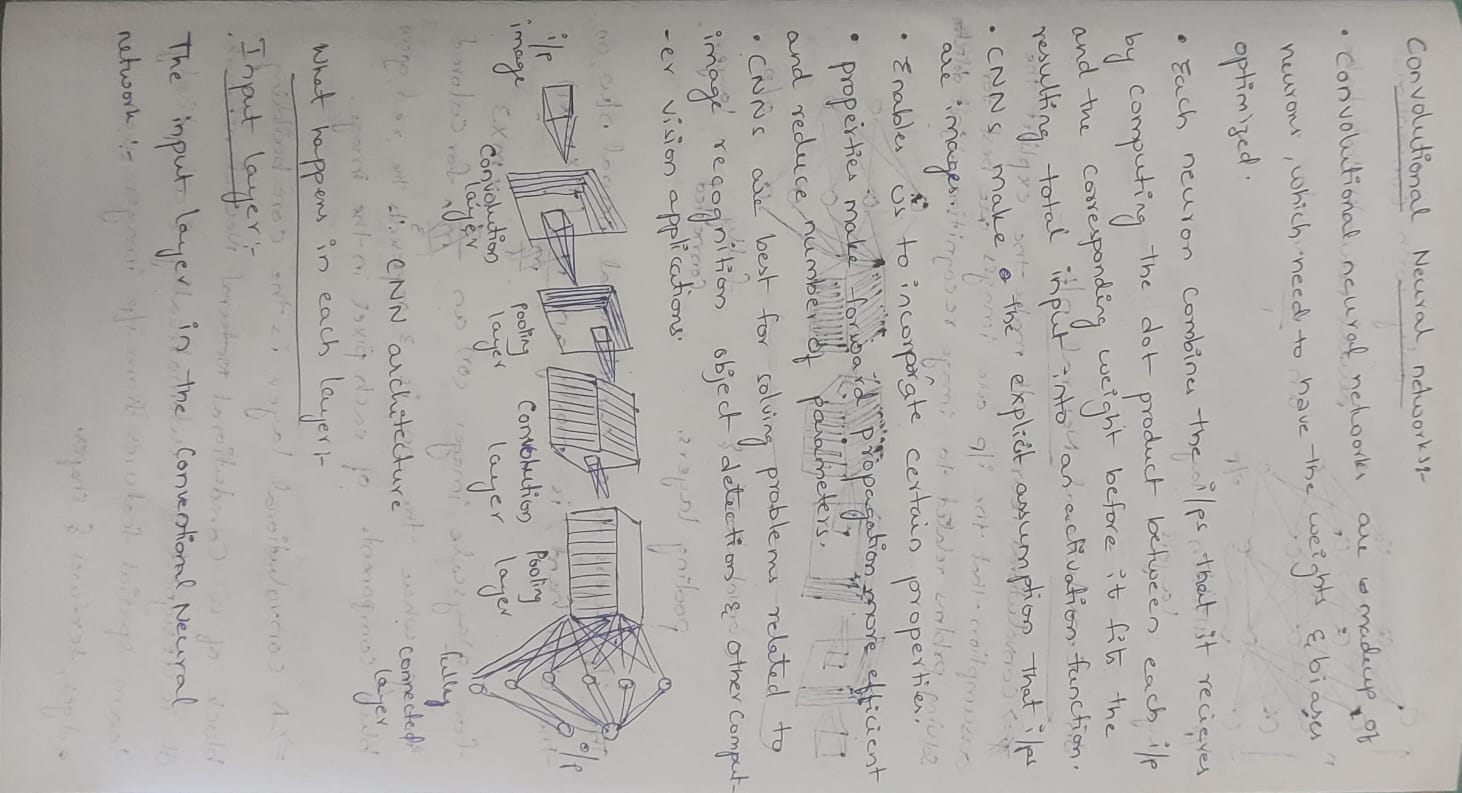 Convolutional Neural networks:-
• Convolutional neural networks are madeup of
neurons, which need to have the weights & biases
optimized.
• Each neuron combines the i/ps that it recieves
by computing the dot product between each i/p
and the corresponding weight before it fits the
resulting total input into an activation function.
• CNNs make the explicit assumption that i/ps
are images.
• Enables us to incorporate certain properties.
• properties make forward propagation more efficient
and reduce number of parameters.
• CNNs are best for solving problems related to
image recognition object detection & other comput-
-er vision applications.
i/p
image
Convolution
layer
Pooling
layer
Convolution
layer
Pooling
layer
o/p
fully
connected
layer
CNN architecture
What happens in each layer:-
Input layer:-
The input layer in the Conventional Neural
network :-